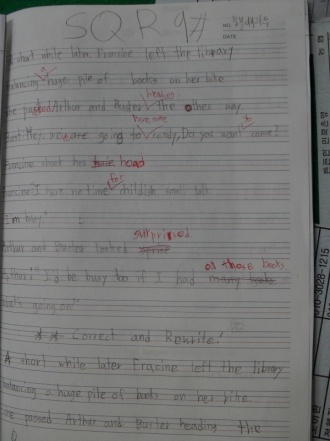 SQR 9#
NO.
DATE
A short while later Francine left the library
balancing a huge pile of books on her bike
She passed Arthur and Buster heading the other way
have some
Hey, we are going to candy, Do you want to come?
Francine shook her head
Francine "I have no time for childish small talk
I'm busy."
surprised
Arthur and Buster looked
all those books
Arthur: "I'd be busy too if I had many books
going on"
** Correct and Rewrite!
A short while later Fracine left the library
balancing a huge pile of books on her bike.
She passed Arthur and Burter heading the
010-3028-1215